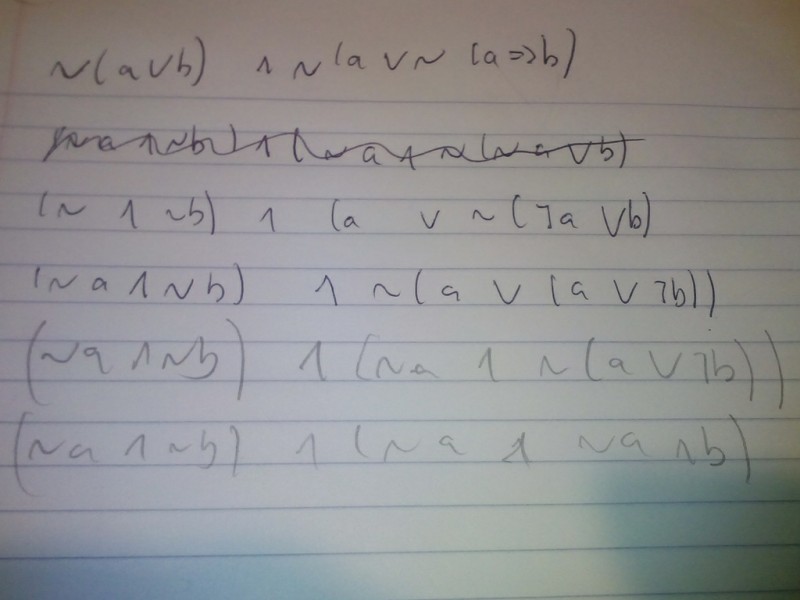 ~(a∨b) ∧ ~(a ∨ ~ (a=>b)
(~a ∧ ~b) ∧ (~a ∧ ~(~a ∨ b)
(~ ∧ ~b) ∧ (a ∨ ~(¬a ∨b)
(~a ∧ ~b) ∧ ~(a ∨ (a ∨ ¬b))
(~a ∧ ~b) ∧ (~a ∧ ~(a ∨ ¬b))
(~a ∧ ~b) ∧ (~a ∧ ~a ∧ b)